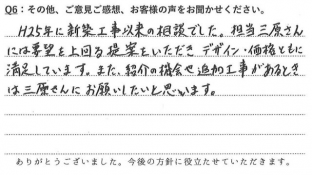 Q6：その他、ご意見ご感想、お客様の声をお聞かせください。
H25年に新築工事以来の相談でした。担当三原さん
には要望を上回る提案をいただき デザイン・価格ともに
満足しています。また、紹介の機会や追加工事があるとき
は三原さんにお願いしたいと思います。
ありがとうございました。今後の方針に役立たせていただきます。